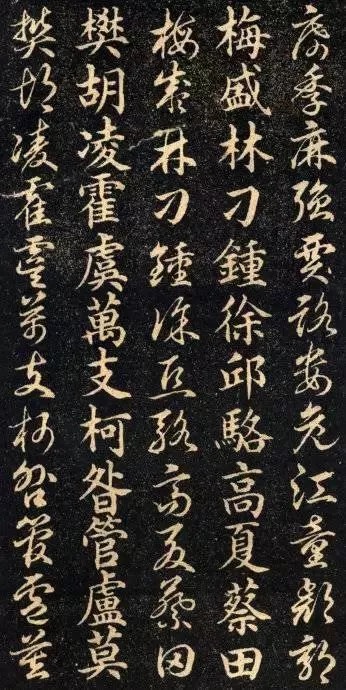 席季麻強賈路婁危江童顏郭
梅盛林刁鍾徐邱駱高夏蔡田
梅盛林刁鍾徐邱駱高夏蔡田
樊胡凌霍虞萬支柯昝管盧莫
樊胡凌霍虞萬支柯昝管盧莫